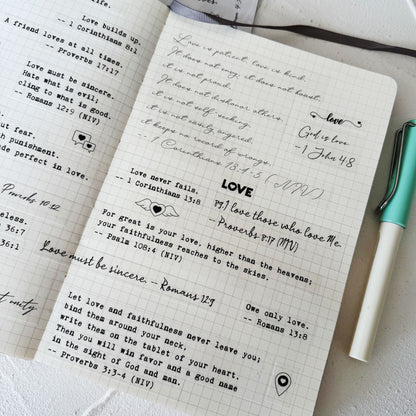 life.
Love builds up.
-- 1 Corinthians 8:1
A friend loves at all times.
-- Proverbs 17:17
Love must be sincere.
Hate what is evil;
cling to what is good.
-- Romans 12:9 (NIV)
out fear.
h punishment.
ade perfect in love.
Proverbs 10:12
eless.
36:7
36:1
st unity
Love is patient, love is kind.
It does not envy, it does not boast,
it is not proud.
It does not dishonor others,
it is not self-seeking,
it is not easily angered,
it keeps no record of wrongs.
- 1 Corinthians 13:4-5 (NIV)
love
God is love.
- 1 John 4:8
Love never fails.
-- 1 Corinthians 13:8
LOVE
I love those who love me.
- Proverbs 8:17 (NIV)
For great is your love, higher than the heavens;
your faithfulness reaches to the skies.
-- Psalm 108:4 (NIV)
Love must be sincere. - Romans 12:9
Owe only love.
-- Romans 13:8
Let love and faithfulness never leave you;
bind them around your neck,
write them on the tablet of your heart.
Then you will win favor and a good name
in the sight of God and man.
-- Proverbs 3:3-4 (NIV)